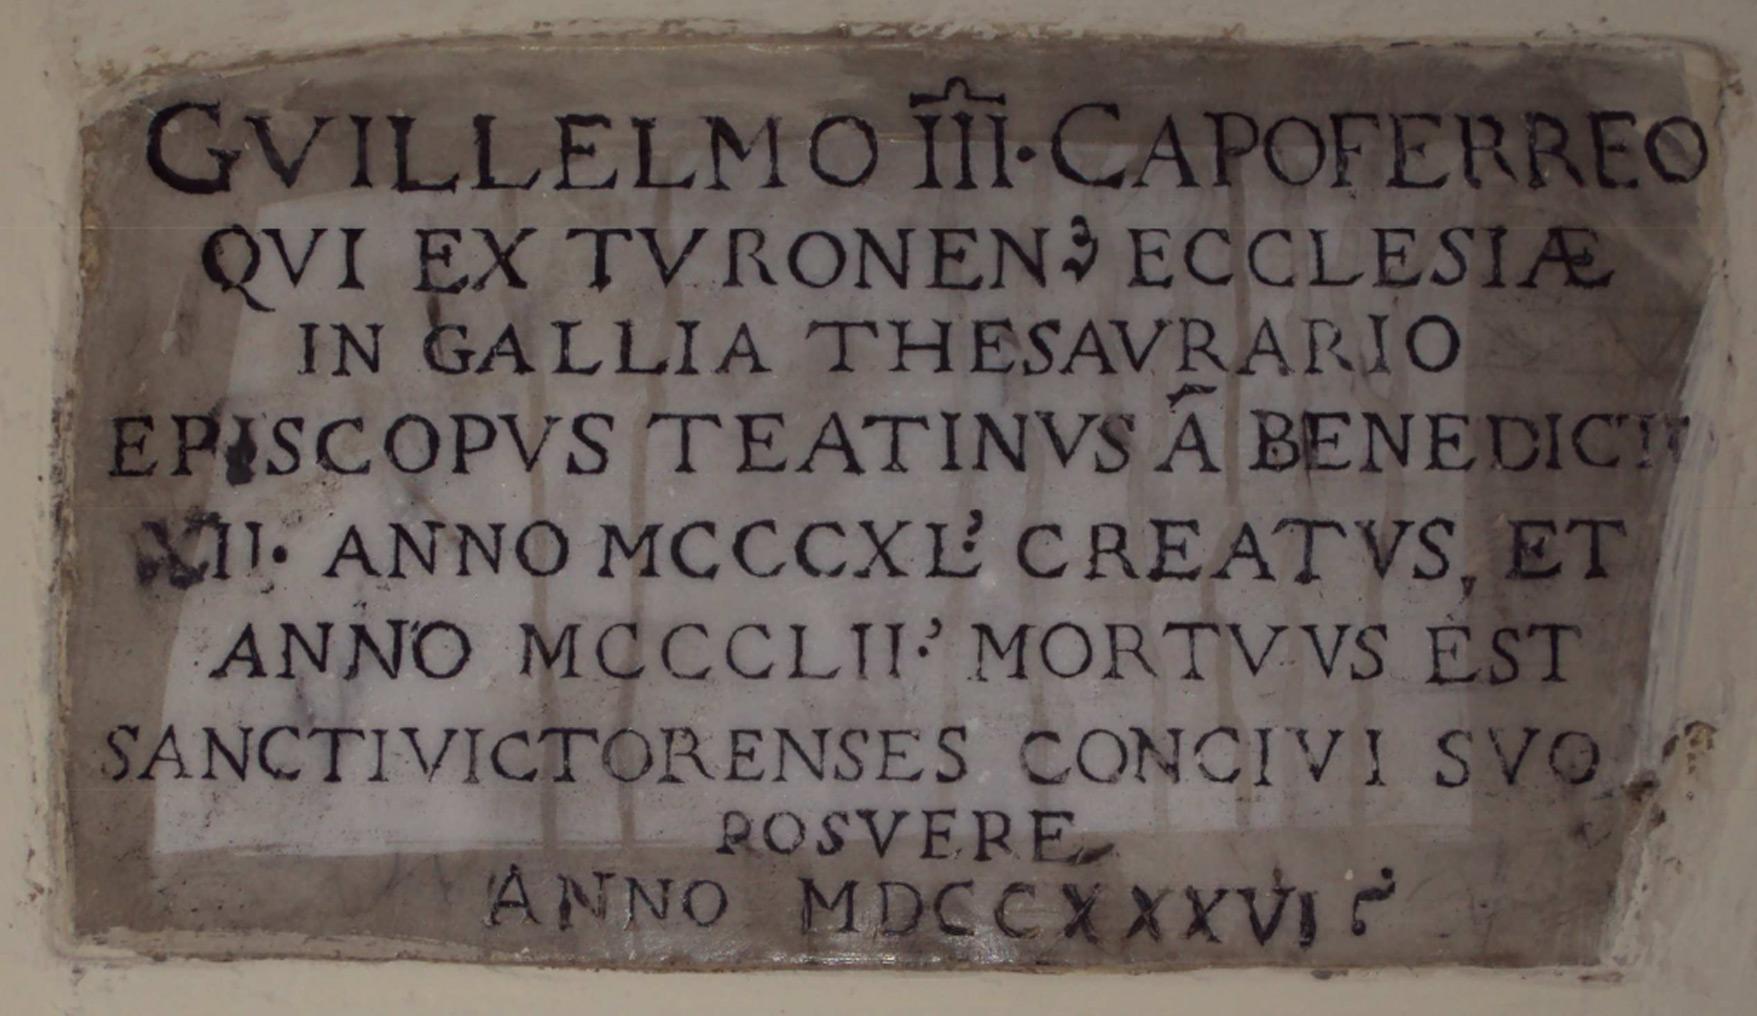 GVILLELMO III. CAPOFERREO
QVI EX TVRONENꝫ ECCLESIÆ
IN GALLIA THESAVRARIO
EPISCOPVS TEATINVS Ã
XII. ANNO MCCCXL. CREATVS, ET
ANNO MCCCLII. MORTVVS EST
SANCTIVICTORENSES CONCIVI SVO
POSVERE
ANNO MDCCXXXVI